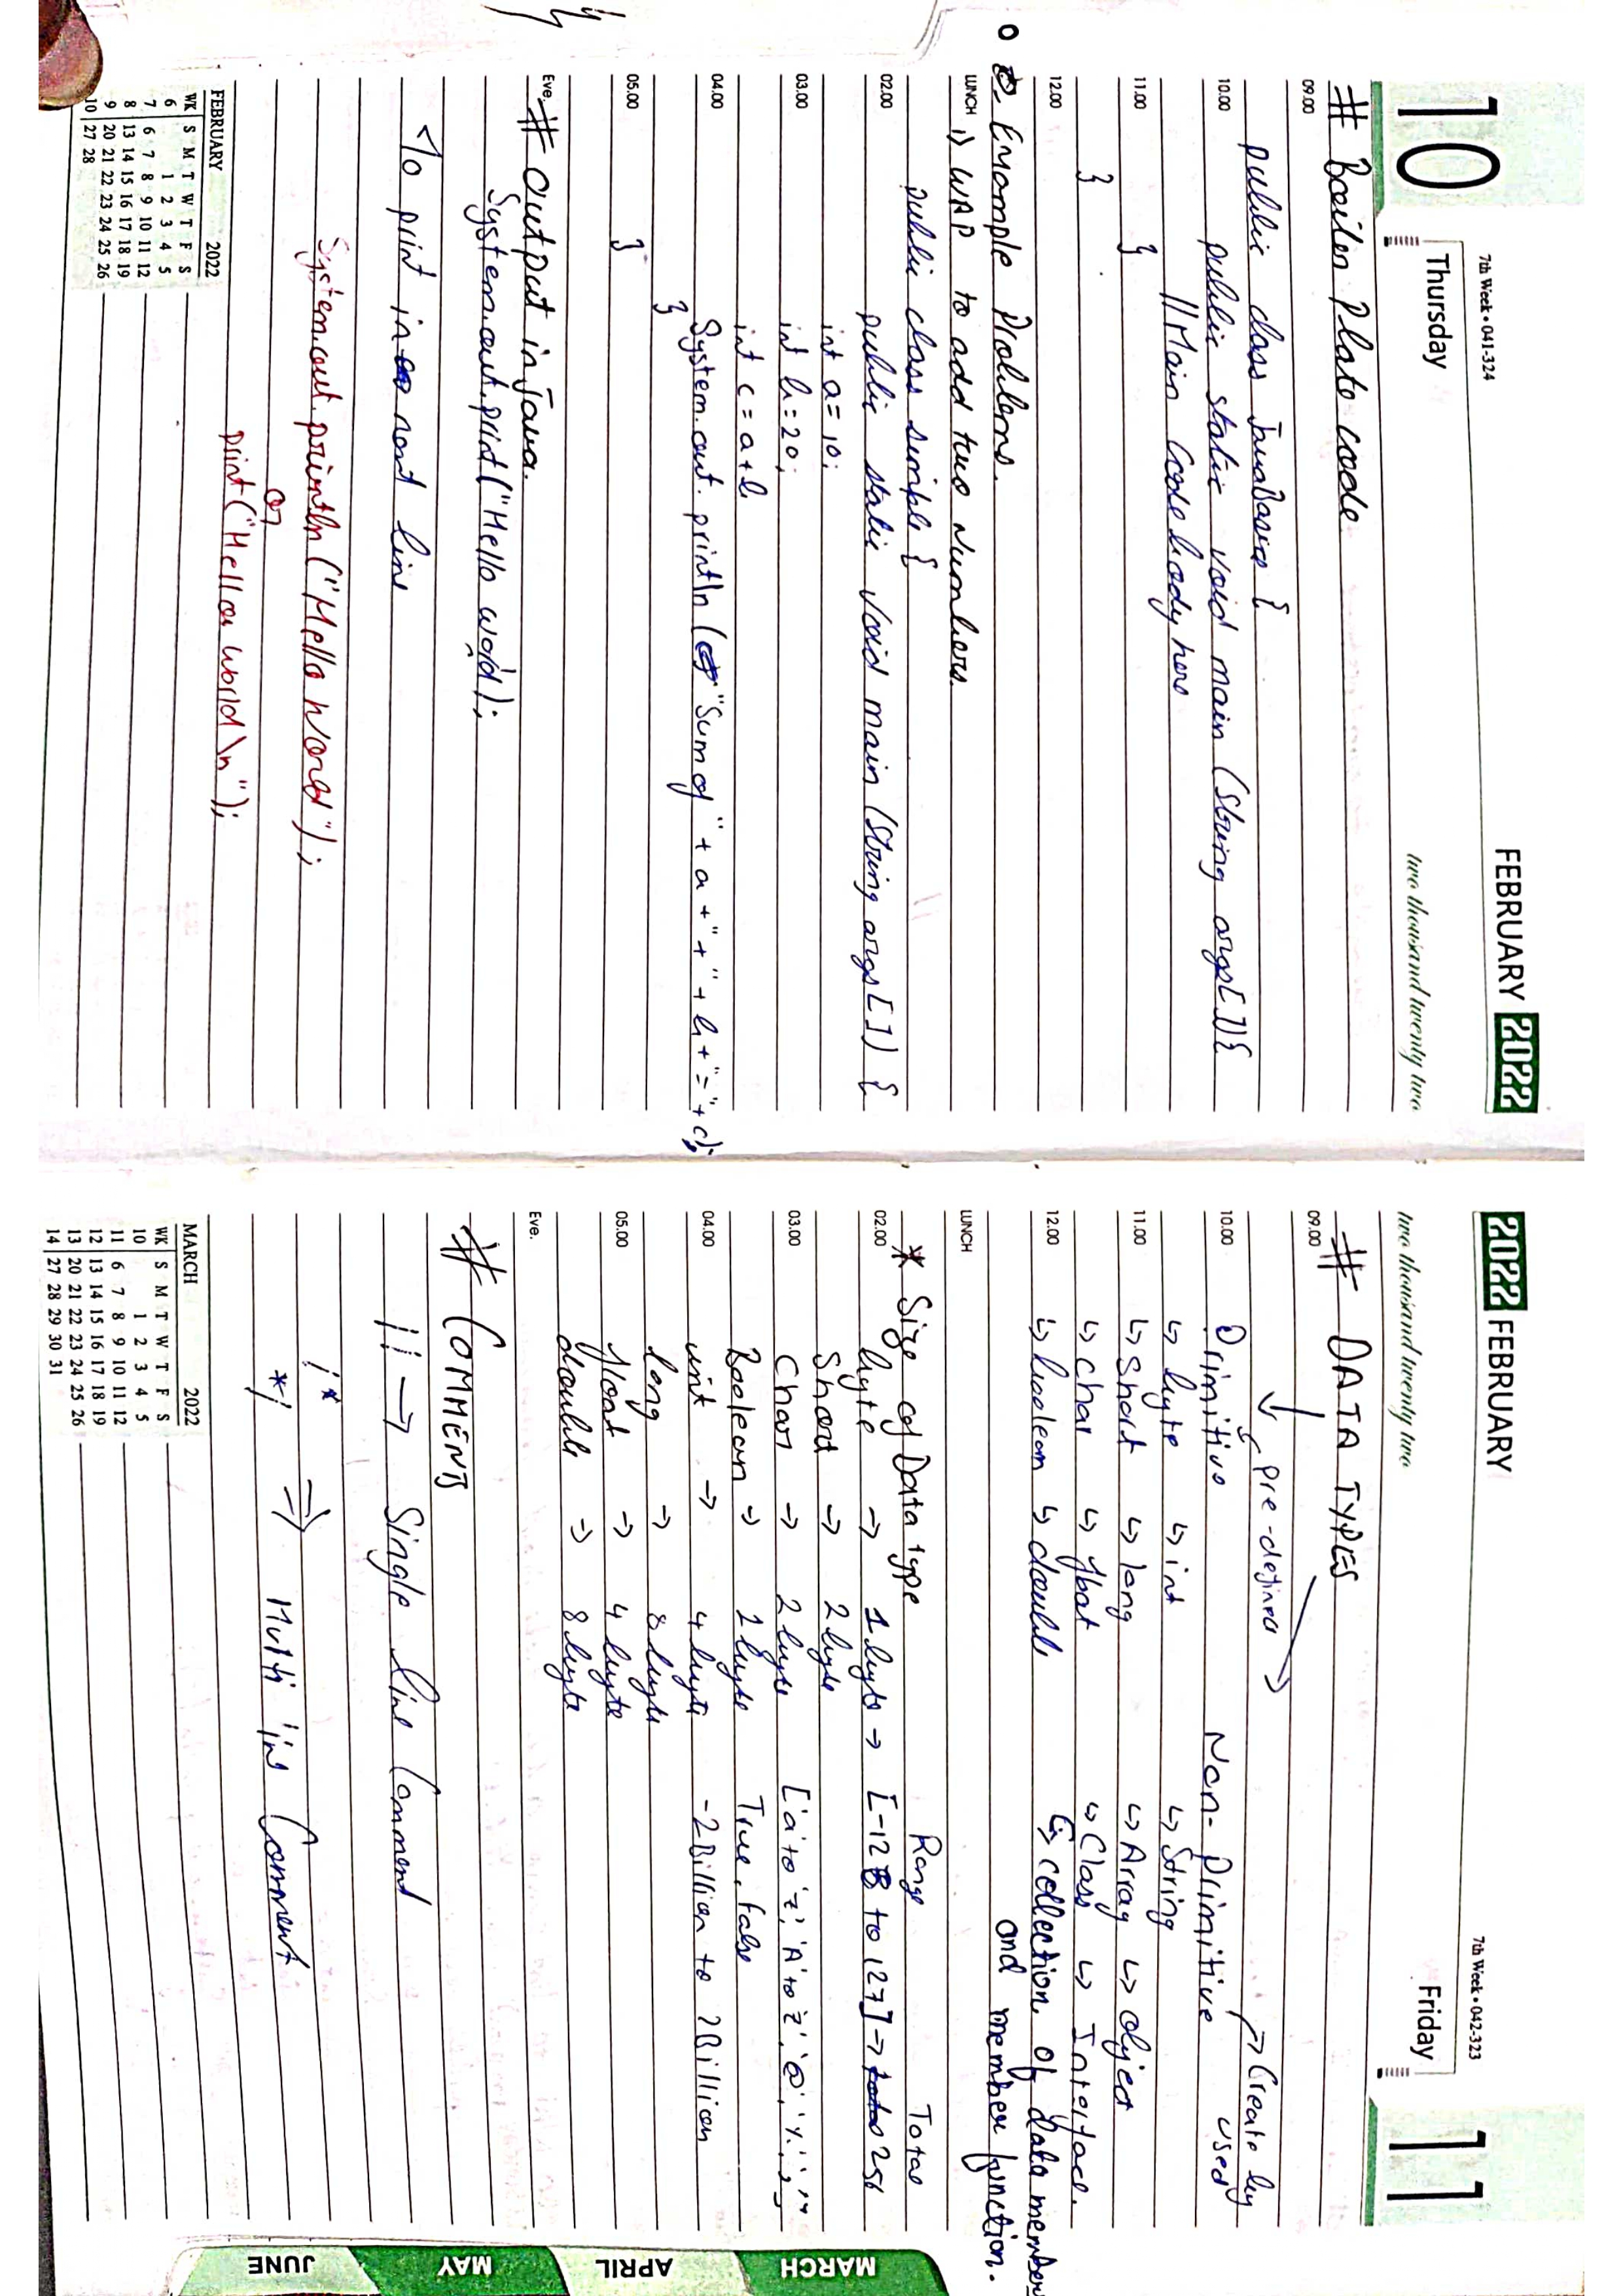 10
7th Week • 041-324
FEBRUARY 2022
Thursday
two thousand twenty two
# Boiler Plate code
09.00
public class JavaBasics {
10.00
public static void main (String args[]){
// Main Code body here
11.00
}
}
12.00
Example Problems.
LUNCH
1) WAP to add two Numbers.
public class simple {
02.00
public static void main (String args[]) {
int a = 10;
03.00
int b = 20;
int c = a+b
04.00
System.out.println ("Sum of " + a + "+" + b + "=" + c);
}
05.00
}
Eve.
# Output in Java.
System.out.print("Hello world);
To print in next line
System.out.println ("Hello World");
or
print("Hello World \n");
FEBRUARY 2022
WK S M T W T F S
6 1 2 3 4 5
7 6 7 8 9 10 11 12
8 13 14 15 16 17 18 19
9 20 21 22 23 24 25 26
10 27 28
2022 FEBRUARY
7th Week • 042-323
11
Friday
two thousand twenty two
# DATA TYPES
09.00
pre-defined
Create by
used
10.00
Primitive Non-Primitive
↳ byte ↳ int ↳ String
11.00
↳ Short ↳ long ↳ Array ↳ Object
↳ char ↳ float ↳ Class ↳ Interface.
12.00
↳ boolean ↳ double ↳ collection of data member
and member function.
LUNCH
* Size of Data type Range Total
02.00
byte → 1 byte → [-128 to 127] → 256
Short → 2 byte
03.00
Char → 2 byte ['a' to 'z', 'A' to 'Z', '@', '%', ',']
Boolean → 1 byte True, False
04.00
int → 4 byte -2 Billion to 2 Billion
long → 8 byte
05.00
float → 4 byte
double → 8 byte
Eve.
# COMMENTS
// → Single line Comment
/*
*/ ⇒ Multi line Comment
MARCH 2022
WK S M T W T F S
10 1 2 3 4 5
11 6 7 8 9 10 11 12
12 13 14 15 16 17 18 19
13 20 21 22 23 24 25 26
14 27 28 29 30 31
MARCH
APRIL
MAY
JUNE